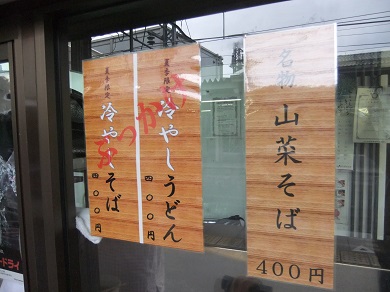 名物
山菜そば
400円
夏季限定
冷やしうどん
四〇〇円
夏季限定
冷やしそば
四〇〇円
ぶっかけ
ードライ